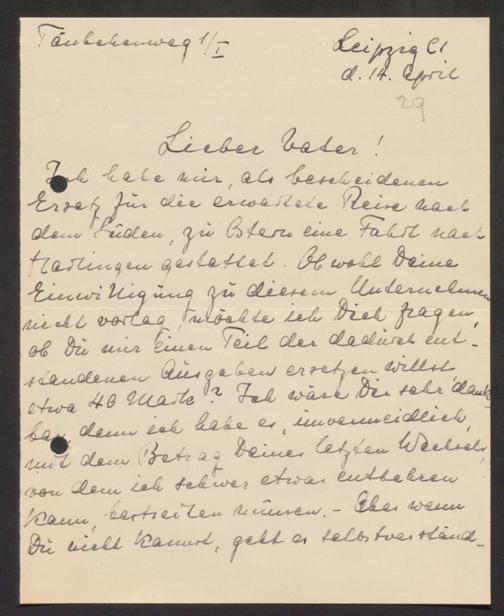 Täubchenweg 1/I
Leipzig C1
d. 14. April
29
Lieber Vater!
Ich habe mir, als bescheidenen
Ersatz für die erwartete Reise nach
dem Süden, zu Ostern eine Fahrt nach
gestattet. Obwohl Deine
Einwilligung zu diesem Unternehmen
nicht vorlag, möchte ich Dich fragen,
ob Du mir einen Teil der dadurch ent-
standenen Ausgaben ersetzen willst
etwa 40 Mark? Ich wäre Dir sehr dank-
bar, denn ich habe es, unvermeidlich,
mit dem Betrag Deines letzten Wechsels,
von dem ich schwer etwas entbehren
kann, bestreiten müssen. - Aber wenn
Du nicht kannst, geht es selbstverständ-